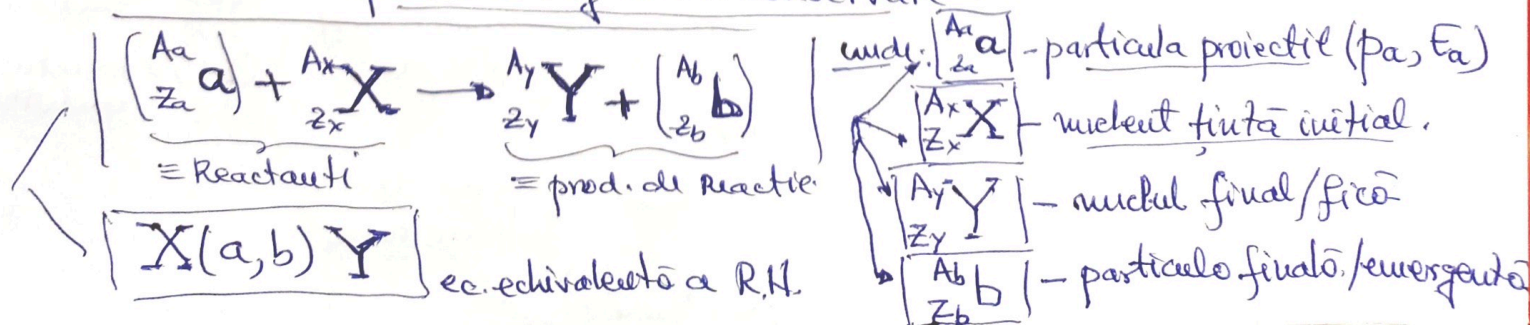 (ᴬᵃ_Za a) + ᴬˣ_Zx X → ᴬʸ_Zy Y + (ᴬᵇ_Zb b)
≡ Reactanti
≡ prod. de Reacție.
X(a,b) Y
ec. echivalentă a R.N.
unde: ᴬᵃ_Za a - particula proiectil (pa, Ea)
ᴬˣ_Zx X - nucleul țintă initial.
ᴬʸ_Zy Y - nucleul final/fiică
ᴬᵇ_Zb b - particula finală/emergentă